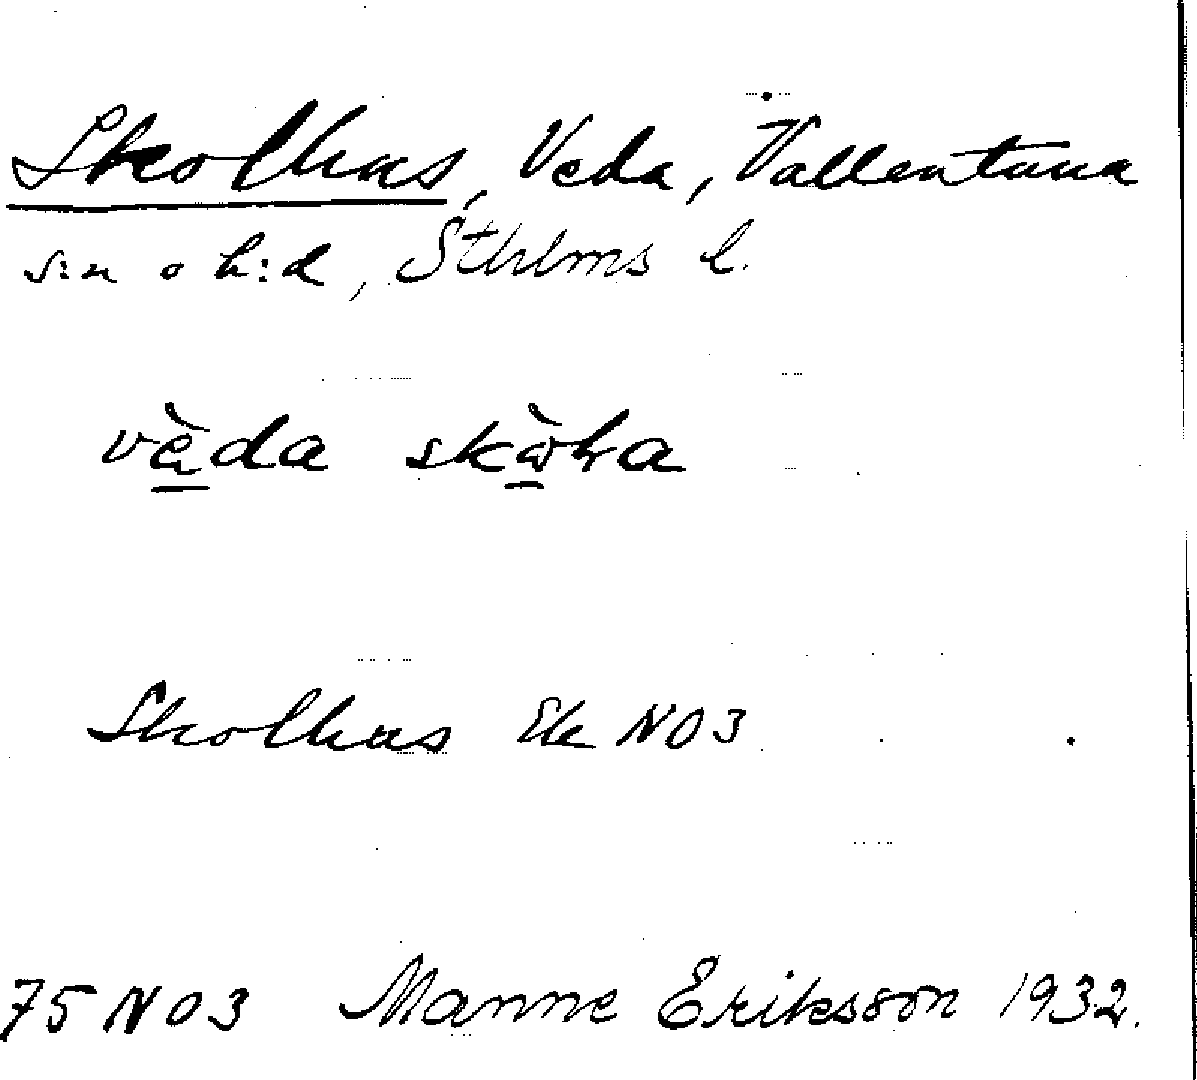 Skolhus, Veda, Vallentuna
s:n o h:d, Sthlms l.
vèda skòła
Skolhus Ek NO3
75 NO3 Manne Eriksson 1932.